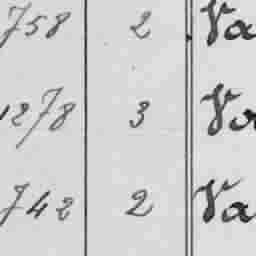 758 2 Va
1278 3 Vo
742 2 Va